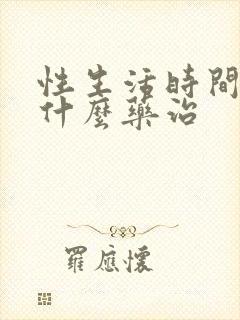 性生活時間
什麼藥治
羅應懷